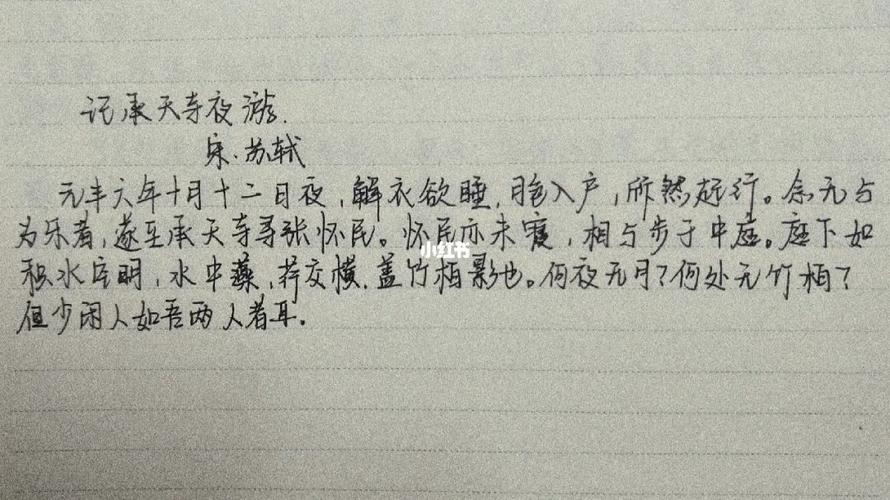 记承天寺夜游.
宋.苏轼
元丰六年十月十二日夜,解衣欲睡,月色入户,欣然起行。念无与
为乐者,遂至承天寺寻张怀民。怀民亦未寝,相与步于中庭。庭下如
积水空明,水中藻、荇交横,盖竹柏影也。何夜无月?何处无竹柏?
但少闲人如吾两人者耳.
小红书